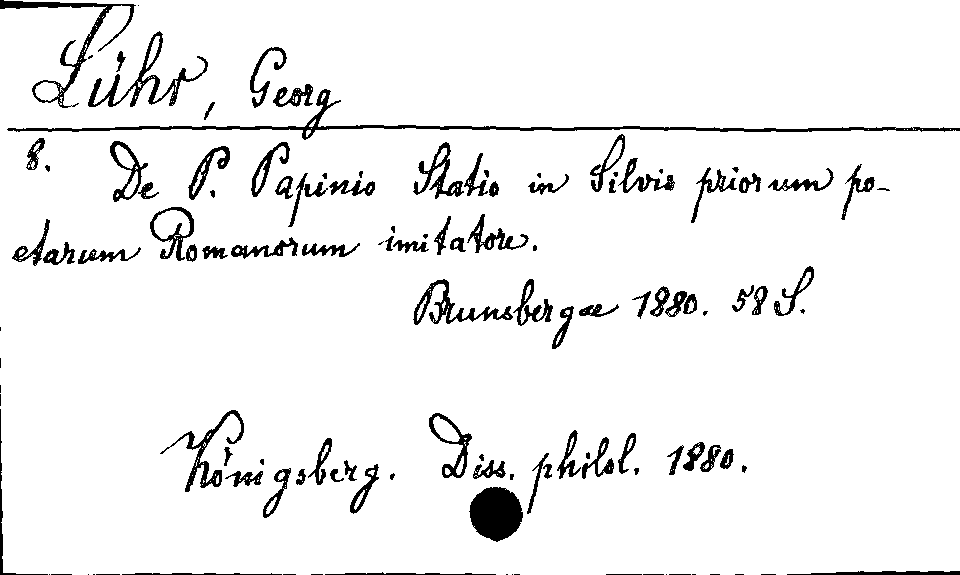 Lühr, Georg
8. De P. Papinio Statio in Silvis priorum po-
etarum Romanorum imitatore.
Brunsbergae 1880. 58 S.
Königsberg. Diss. philol. 1880.